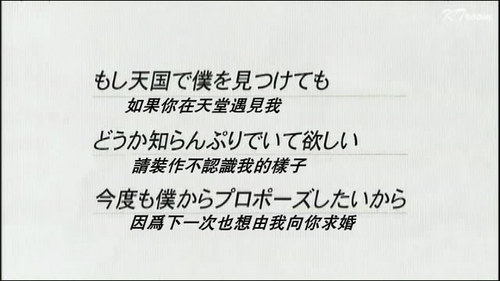 KTroom
もし天国で僕を見つけても
如果你在天堂遇見我
どうか知らんぷりでいて欲しい
請裝作不認識我的樣子
今度も僕からプロポーズしたいから
因爲下一次也想由我向你求婚